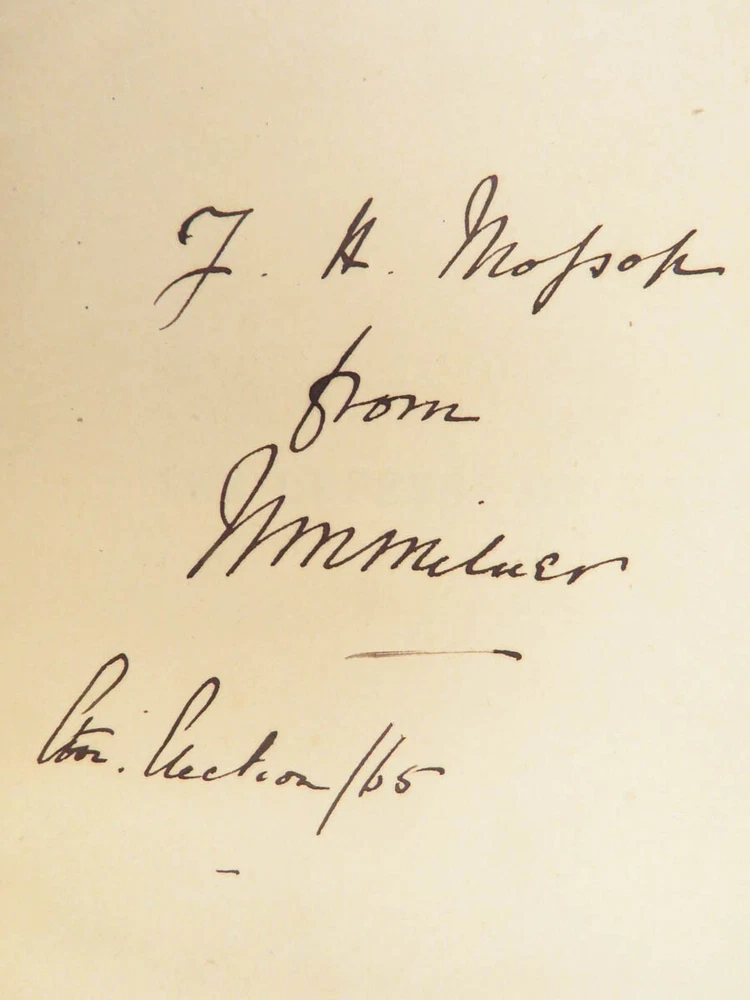 J. H. Mossop
from
Wm Milner
Election /65